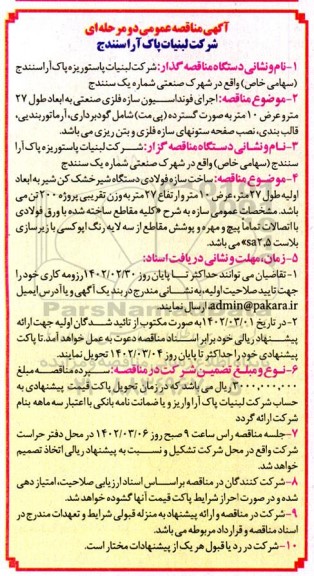 آگهی مناقصه عمومی دو مرحله ای
شرکت لبنیات پاک آرا سنندج
۱-نام و نشانی دستگاه مناقصه گذار: شرکت لبنیات پاستوریزه پاک آرا سنندج
(سهامی خاص) واقع در شهرک صنعتی شماره یک سنندج
۲-موضوع مناقصه: اجرای فونداسیون سازه فلزی صنعتی به ابعاد طول ۲۷
متر و عرض ۱۰ متر به صورت گسترده (پی مت) شامل گودبرداری، آرماتوربندیی،
قالب بندی، نصب صفحه ستونهای سازه فلزی و بتن ریزی می باشد.
۳-نام و نشانی دستگاه مناقصه گزار: شرکت لبنیات پاستوریزه پاک آرا
سنندج (سهامی خاص) واقع در شهرک صنعتی شماره یک سنندج
۴-موضوع مناقصه: ساخت سازه فولادی دستگاه شیر خشک کن شیر به ابعاد
اولیه طول ۲۷ متر، عرض ۱۰ متر و ارتفاع ۲۷ متر به وزن تقریبی پروژه ۲۰۰ تن می
باشد. مشخصات عمومی سازه به شرح «کلیه مقاطع ساخته شده با ورق فولادی
با اتصالات تماما پیچ و مهره و پوشش مقاطع از سه لایه رنگ اپوکسی با زیرسازی
بلاست sa۲.۵» می باشد.
۵-زمان، مهلت و نشانی دریافت اسناد:
۱- تقاضیان می توانند حداکثر تا پایان روز ۱۴۰۲/۰۲/۳۰ رزومه کاری خود را
جهت تایید صلاحیت اولیه، به نشانی مندرج در بند یک آگهی و یا آدرس ایمیل
admin@pakara.ir ارسال نمایند.
۲- در تاریخ ۱۴۰۲/۰۳/۰۱ به صورت مکتوب از تائید شدگان اولیه جهت ارائه
پیشنهاد ریالی خود برابر اسناد مناقصه دعوت به عمل خواهد آمد تا پاکت
پیشنهادی خود را حداکثر تا پایان روز ۱۴۰۲/۰۳/۰۴ تحویل نمایند.
۶-نوع و مبلغ تضمین شرکت در مناقصه: سپرده مناقصه مبلغ
۳،۰۰۰،۰۰۰،۰۰۰ ریال می باشد که در زمان تحویل پاکت قیمت پیشنهادی به
حساب شرکت لبنیات پاک آرا واریز و یا ضمانت نامه بانکی با اعتبار سه ماهه بنام
شرکت ارائه گردد
۷-جلسه مناقصه راس ساعت ۹ صبح روز ۱۴۰۲/۰۳/۰۶ در محل دفتر حراست
شرکت واقع در محل شرکت تشکیل و نسبت به پیشنهاد ریالی اتخاذ تصمیم
خواهد شد.
۸-شرکت کنندگان در مناقصه براساس اسناد ارزیابی صلاحیت، امتیاز دهی
شده و در صورت احراز شرایط پاکت قیمت آنها گشوده خواهد شد.
۹-شرکت در مناقصه و ارائه پیشنهاد به منزله قبولی شرایط و تعهدات مندرج در
اسناد مناقصه و قرارداد مربوطه می باشد.
۱۰-شرکت در رد یا قبول هر یک از پیشنهادات مختار است.